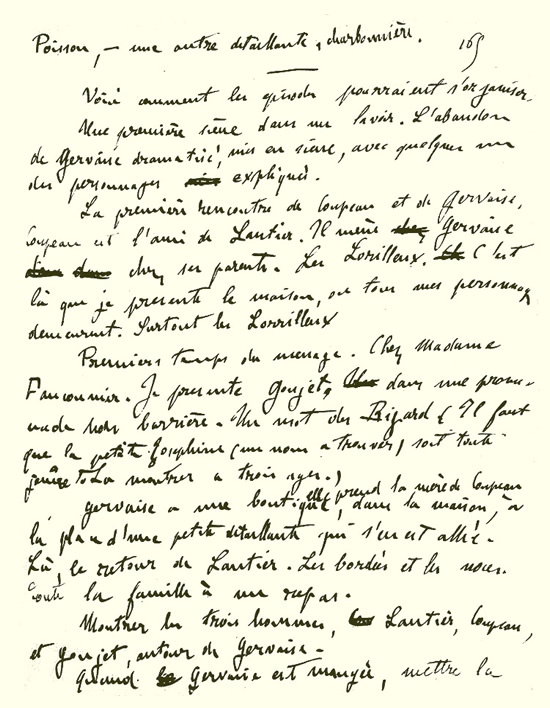 Poisson, – une autre détaillante, charbonnière. 165
Voici comment les épisodes pourraient s'organiser.
Une première scène dans un lavoir. L'abandon
de Gervaise dramatisé, mis en scène, avec quelques uns
des personnages expliqués.
La première rencontre de Coupeau et de Gervaise,
Coupeau est l'ami de Lantier. Il mène Gervaise
chez ses parents. Les Lorilleux. C'est
là que je présente la maison, où tous mes personnages
demeurent. Surtout les Lorrilleux
Premiers temps du ménage. Chez Madame
Fauconnier. Je présente Goujet, dans une prome-
nade hors barrière. Un mot des Bijard (Il faut
que la petite Joséphine (un nom à trouver) soit toute
jeune La montrer à trois ages.)
Gervaise a une boutique, elle prend la mère de Coupeau
dans la maison, à
la place d'une petite détaillante qui s'en est allée.
Là, le retour de Lantier. Les bordées et les noces.
Toute la famille à un repas.
Montrer les trois hommes, Lantier, Coupeau,
et Goujet, autour de Gervaise.
Quand Gervaise est mangée, mettre la